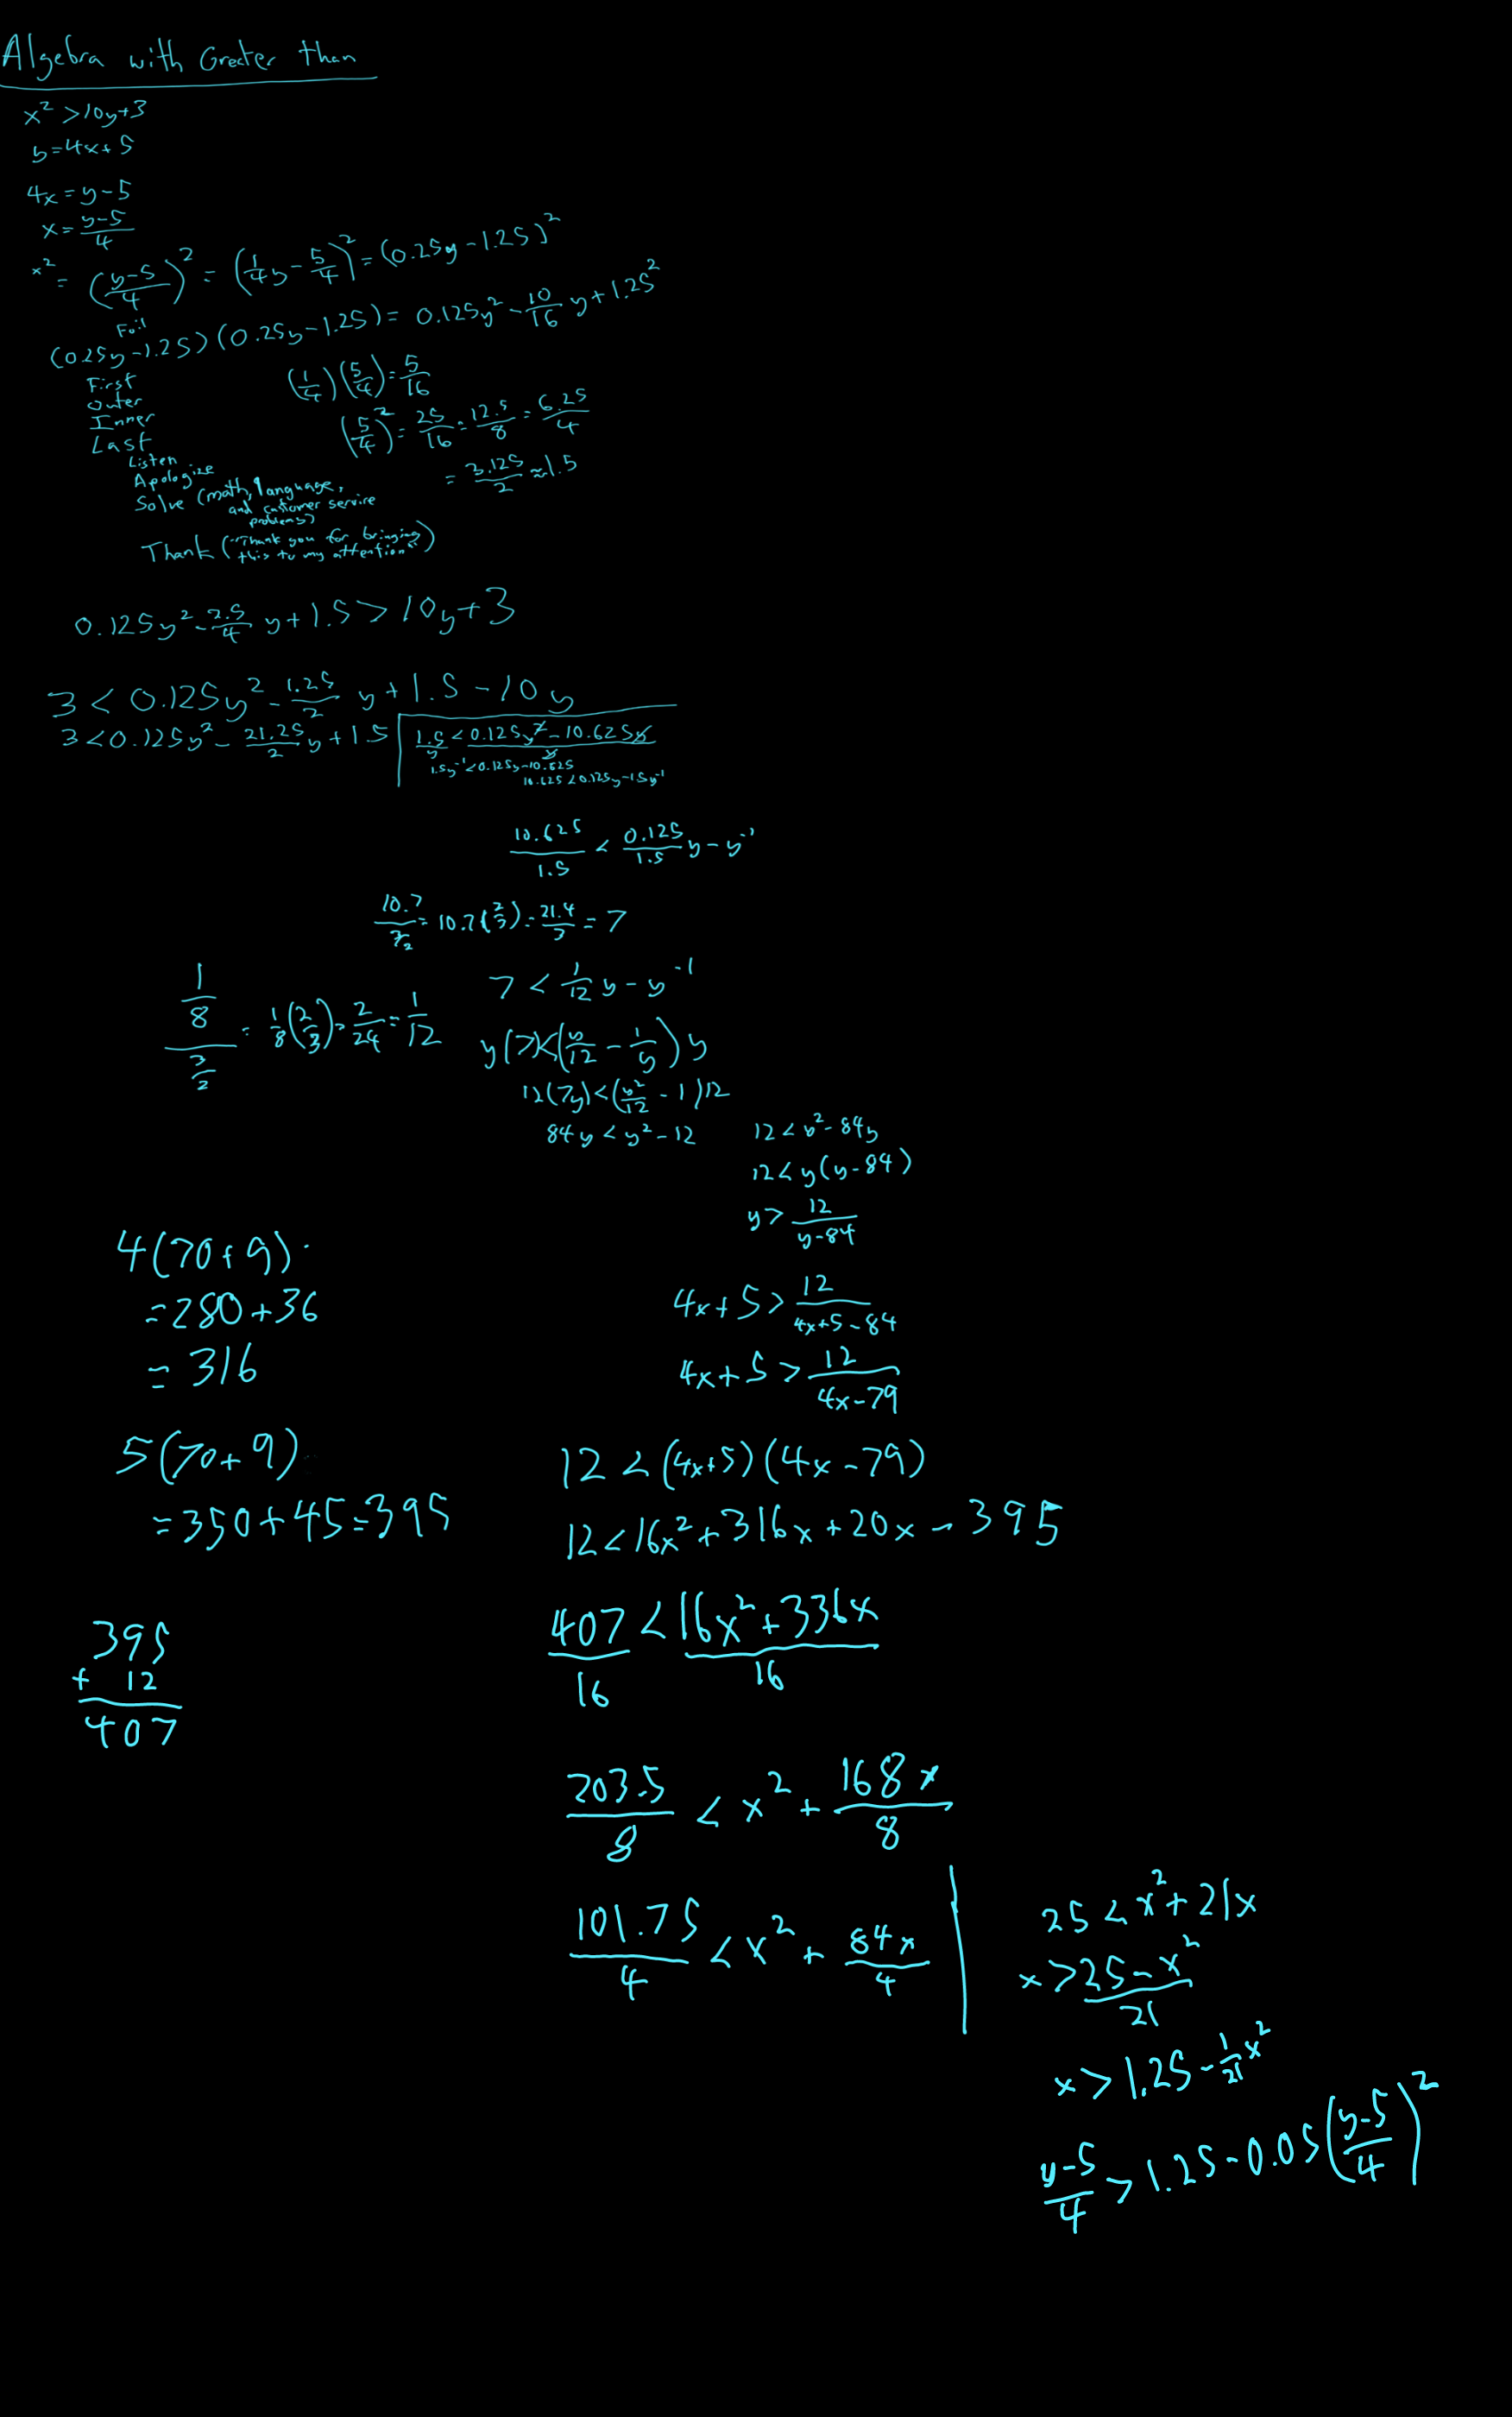 Algebra with Greater than
x² > 10y+3
y=4x+5
4x = y-5
x = (y-5)/4
x² = ((y-5)/4)² = (1/4 y - 5/4)² = (0.25y - 1.25)²
Foil
(0.25y-1.25)(0.25y-1.25) = 0.125y² - 10/16 y + 1.25²
First
Outer
Inner
Last
(1/4)(5/4) = 5/16
(5/4)² = 25/16 = 12.5/8 = 6.25/4
= 3.125/2 ≈ 1.5
Listen
Apologize
Solve (math, language,
and customer service
problems)
Thank ("Thank you for bringing
this to my attention")
0.125y² - 2.5/4 y + 1.5 > 10y+3
3 < 0.125y² - 1.25/2 y + 1.5 - 10y
3 < 0.125y² - 21.25/2 y + 1.5
1.5/y < (0.125y² - 10.625y)/y
1.5y⁻¹ < 0.125y - 10.625
10.625 < 0.125y - 1.5y⁻¹
10.625/1.5 < 0.125/1.5 y - y⁻¹
10.7/(3/2) = 10.7(2/3) = 21.4/3 = 7
7 < 1/12 y - y⁻¹
(1/8)/(3/2) = 1/8(2/3) = 2/24 = 1/12
y(7) < (y/12 - 1/y) y
12(7y) < (y²/12 - 1)12
84y < y² - 12
12 < y² - 84y
12 < y(y-84)
y > 12/(y-84)
4(70+9)
= 280+36
= 316
4x+5 > 12/(4x+5-84)
4x+5 > 12/(4x-79)
5(70+9)
= 350+45=395
12 < (4x+5)(4x-79)
12 < 16x² + 316x + 20x - 395
395
+ 12
407
407/16 < (16x²+336x)/16
203.5/8 < x² + 168x/8
101.75/4 < x² + 84x/4
25 < x² + 21x
x > (25-x²)/21
x > 1.25 - 1/21 x²
(y-5)/4 > 1.25 - 0.05((y-5)/4)²